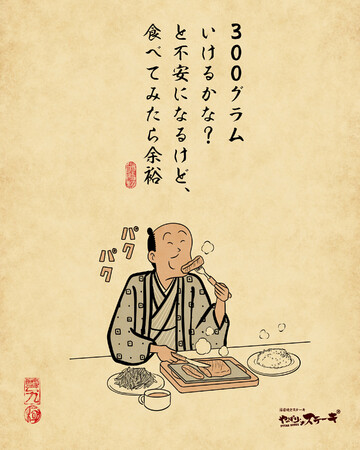 300グラム
いけるかな?
と不安になるけど、
食べてみたら余裕
パク
パク
やっぱりステーキ